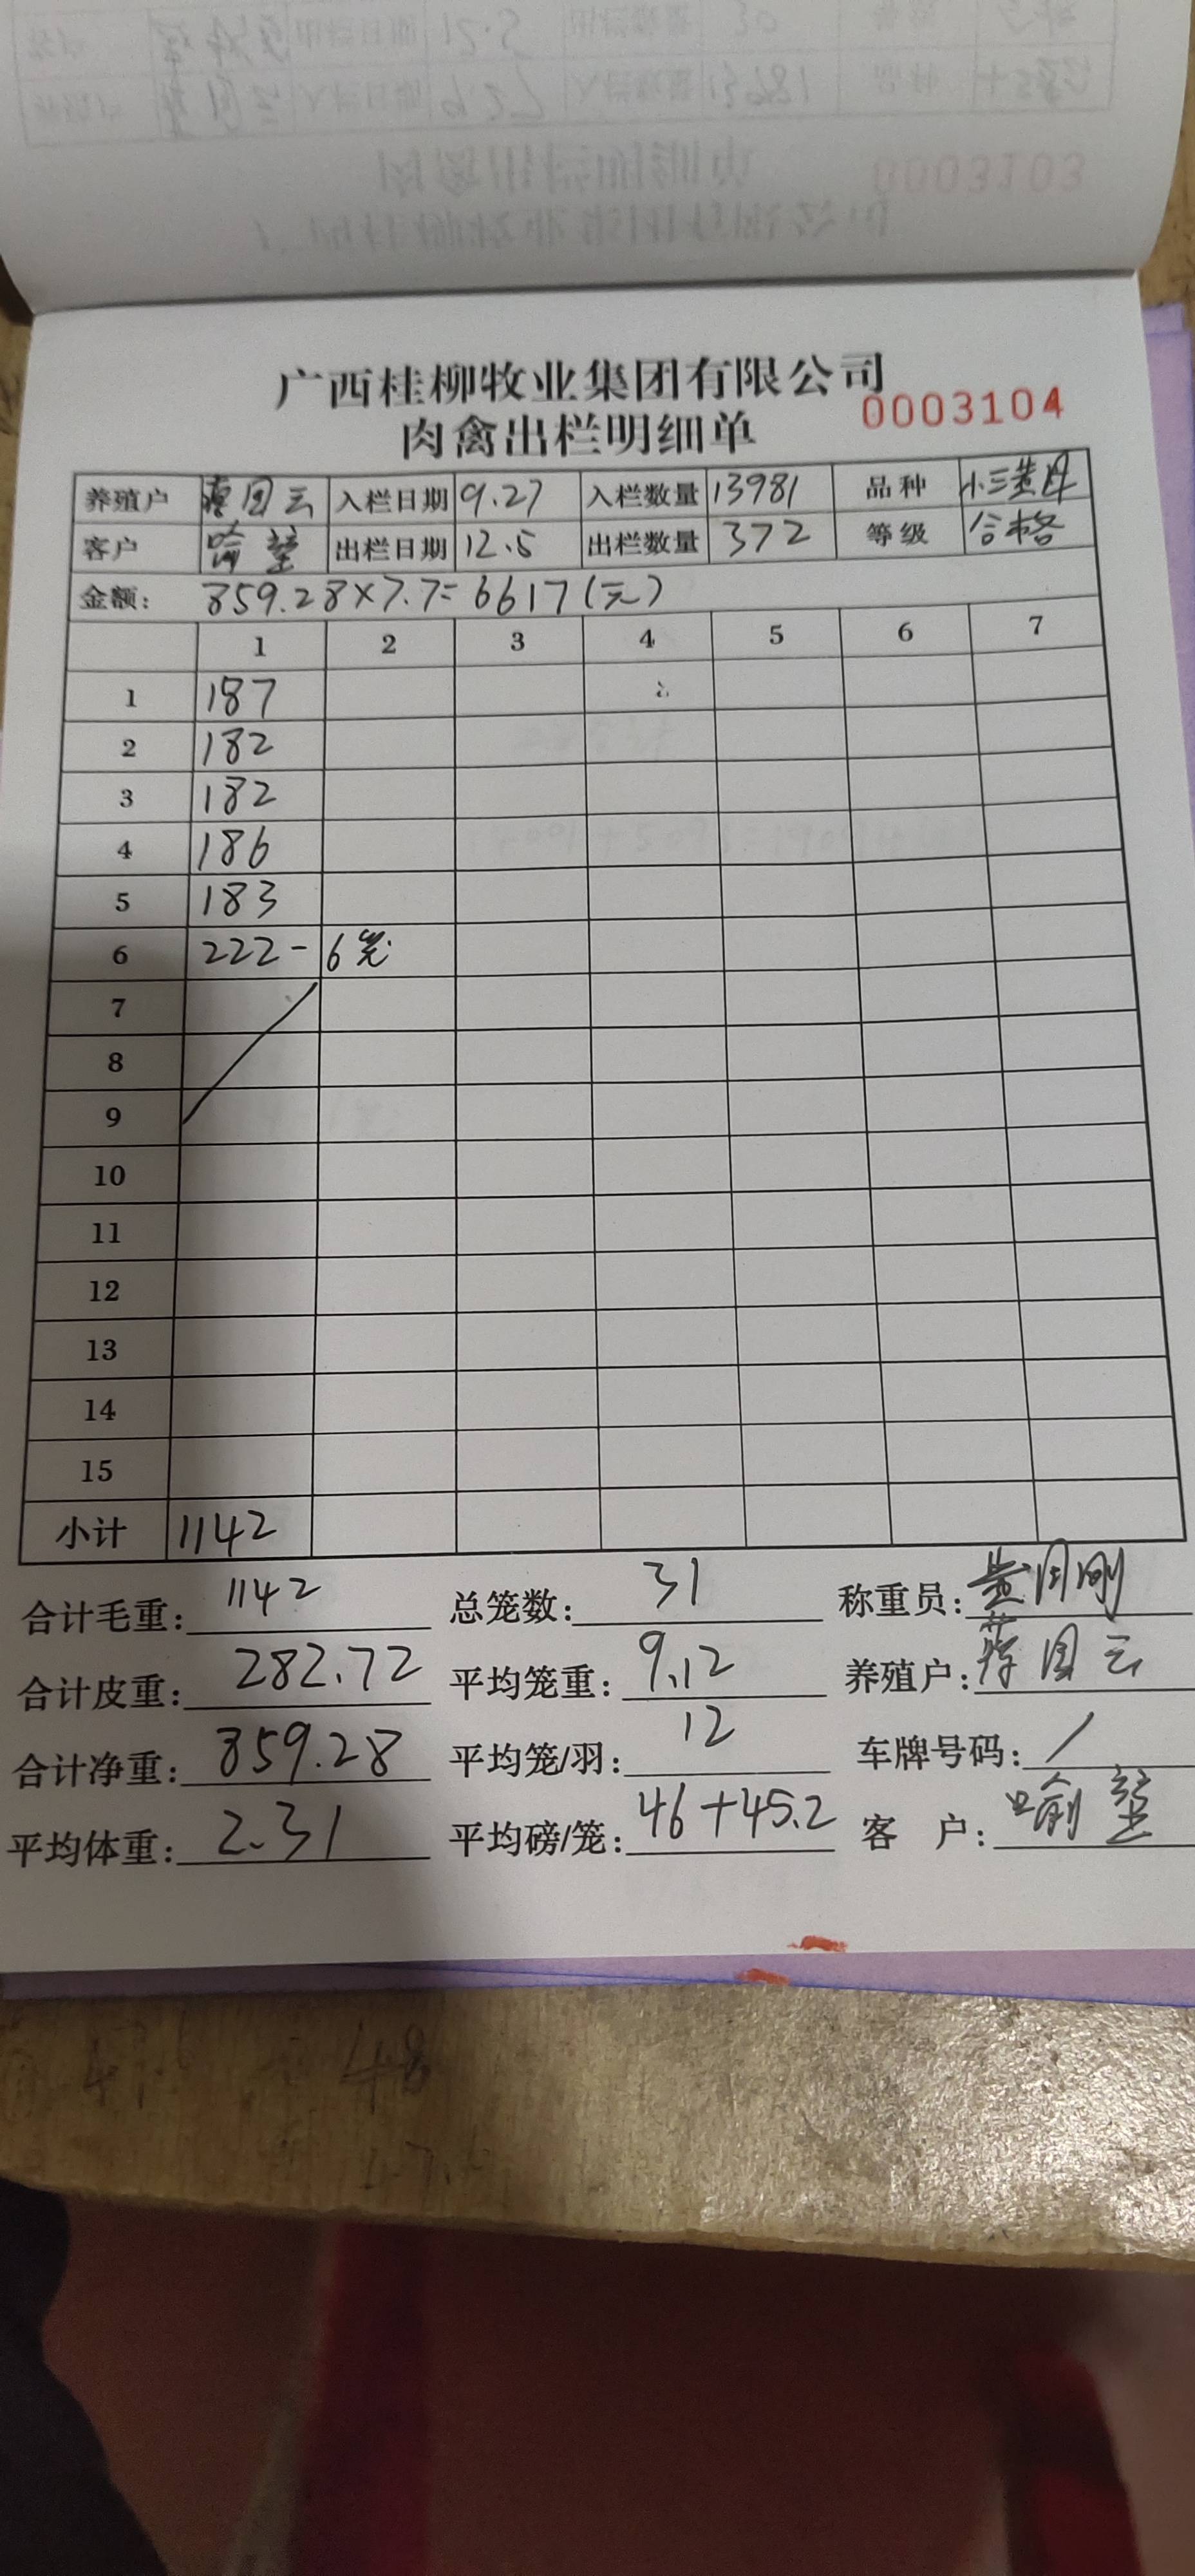 广西桂柳牧业集团有限公司
肉禽出栏明细单 0003104
养殖户 国云 入栏日期 9.27 入栏数量 13981 品种 小三黄
客户 喻 出栏日期 12.5 出栏数量 372 等级 合格
金额: 859.28×7.7=6617(元)
1 2 3 4 5 6 7
1 187
2 182
3 182
4 186
5 183
6 222-6笼
7
8
9
10
11
12
13
14
15
小计 1142
合计毛重: 1142 总笼数: 31 称重员:
合计皮重: 282.72 平均笼重: 9.12 养殖户: 国云
合计净重: 859.28 平均笼/羽: 12 车牌号码: /
平均体重: 2.31 平均磅/笼: 46+45.2 客 户: 喻